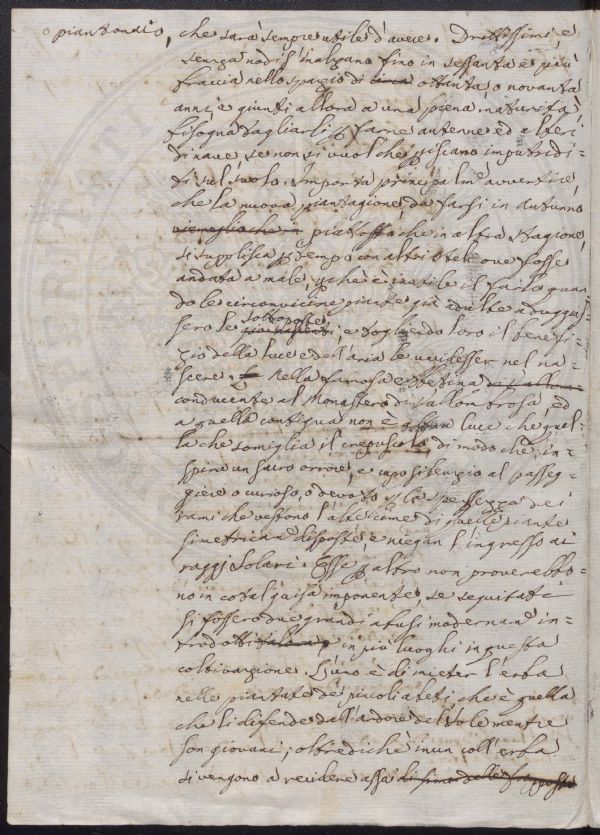 o piantonaio, che sarà sempre utile d'avere. Drittissimi, e
senza nodi s'inalzano fino in sessanta e più
braccia nello spazio di circa ottanta, o novanta
anni, e giunti allora a una piena maturità
bisogna tagliarli p farne antenne ed alberi
di nave se non si vuol che piscano imputridi-
ti sul suolo. Importa principalme avvertire
che la nuova piantagione da farsi in Autunno
piuttosto che in altra stagione,
si supplisca p tempo con altri Abeti ove fosse
andata a male, pche è inutile il farlo quan-
do le circonvicine piante già adulte aduggias-
sero le sottoposte, e togliendo loro il benefi-
zio della luce e dell'aria le uccidesser nel na-
scere. Nella famosa Abetina
conducente al Monastero di Vallombrosa, ed
a quella contigua non è luce che quel-
la che somiglia il crepuscolo, di modo che in-
spira un sacro orrore, e cupo silenzio al passeg-
giere o curioso, o devoto p la spessezza dei
rami che vestono l'alte cime di quelle piante
simetricame disposte, e niegan l'ingresso ai
raggi solari. Esse p altro non proverebbo-
no in cotal guisa imponente, se seguitati
si fossero due grandi abusi modername in-
trodotti in più luoghi in questa
coltivazione. L'uno è di mieter l'erba
nelle piantate de' piccoli abeti, che è quella
che li difende dall'ardore del Sole mentre
son giovani; oltrediche in un coll'erba
si vengono a recidere assai